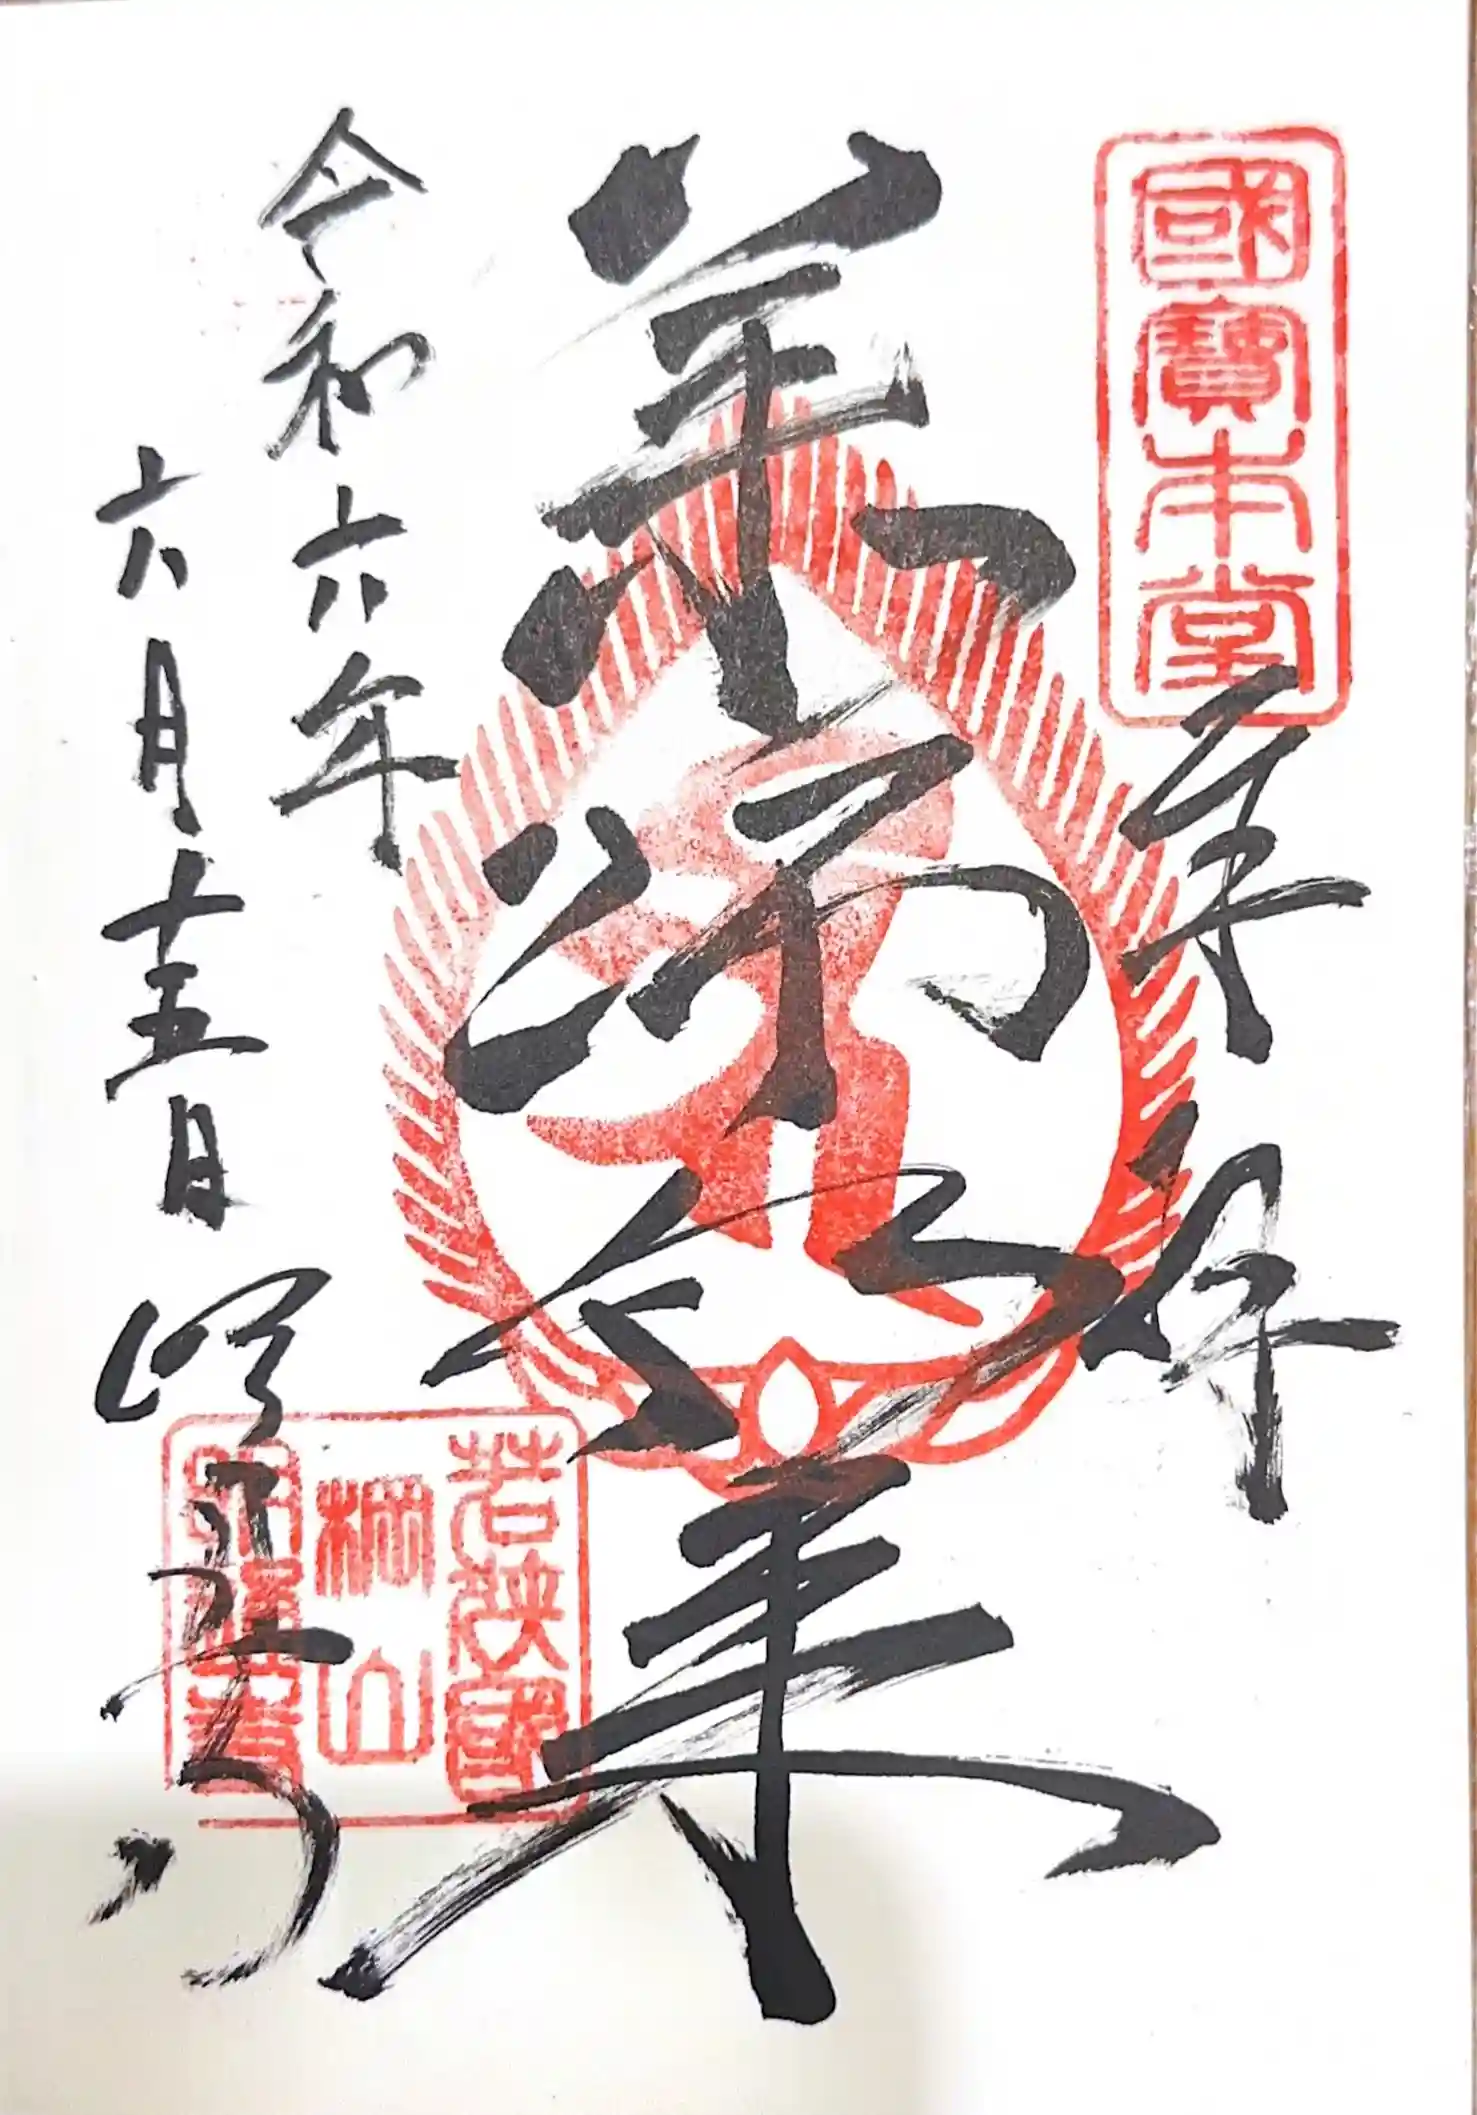 國寶本堂
奉拝
薬師如来
令和六年
六月十五日
明通寺
若狭國
棡山
明通寺